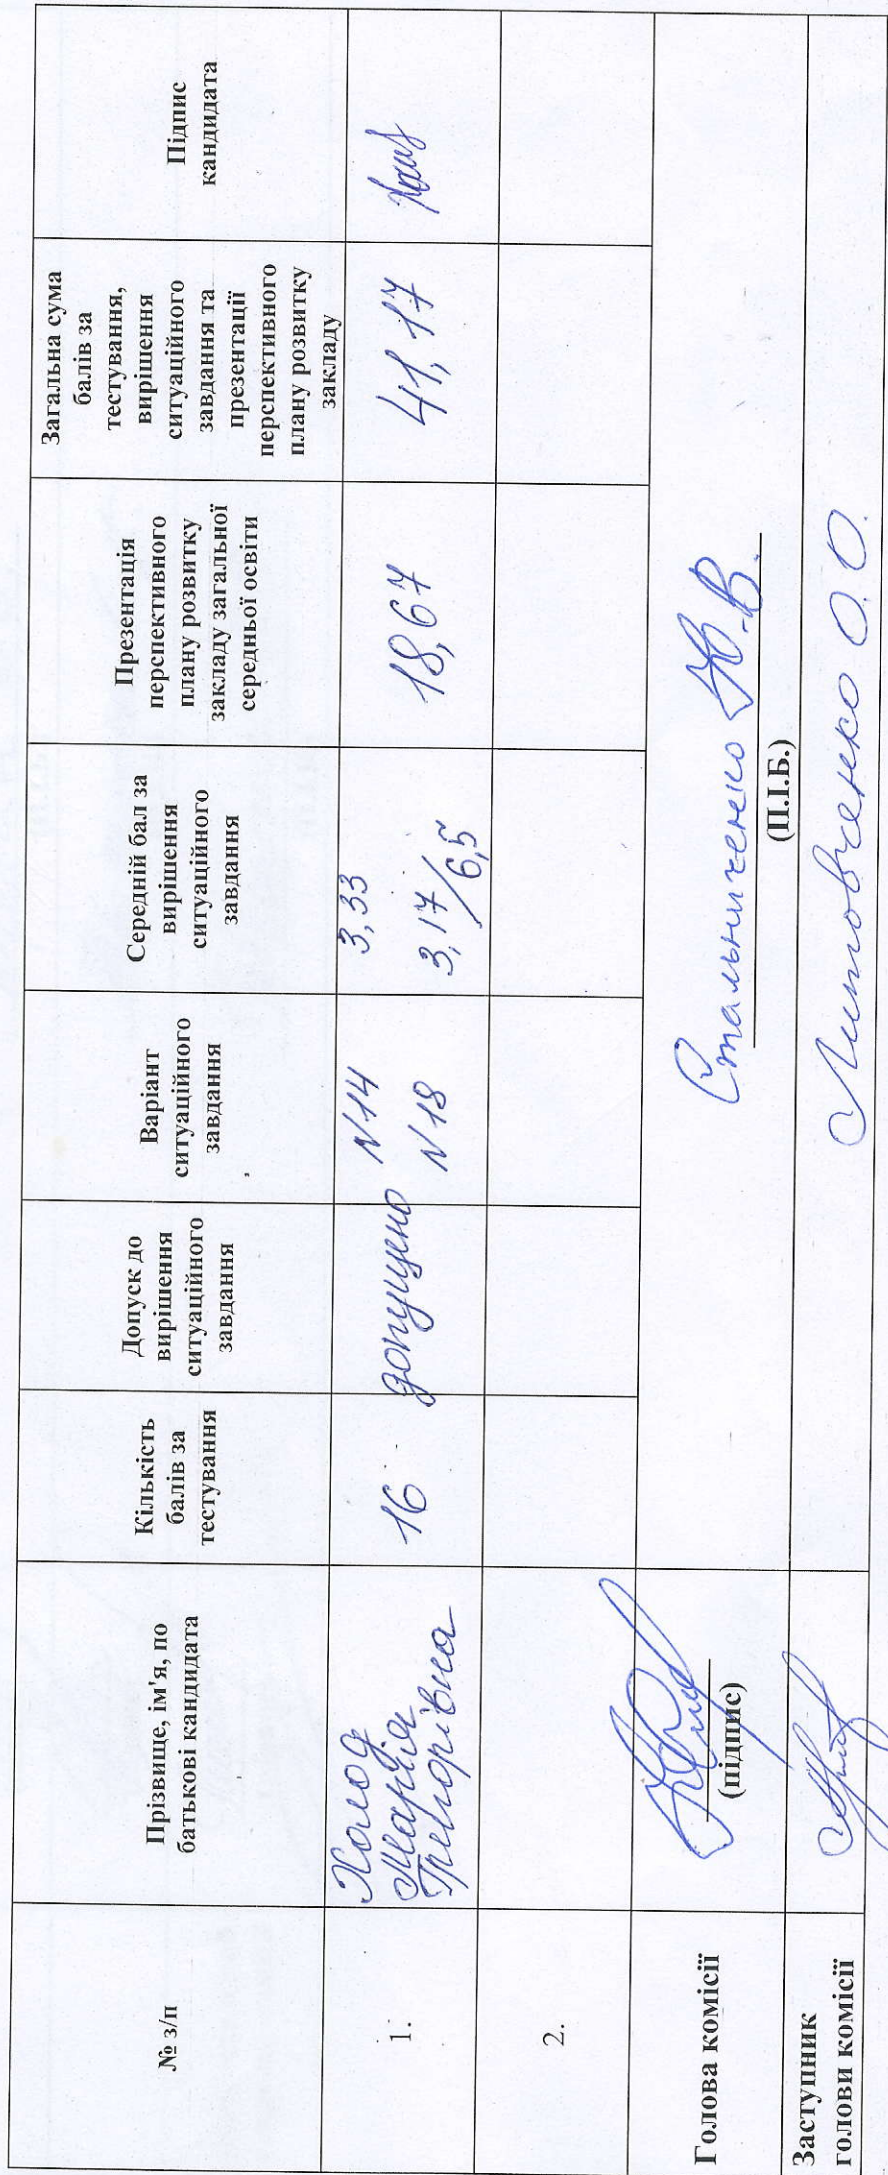 № з/п
Прізвище, ім'я, по
батькові кандидата
Кількість
балів за
тестування
Допуск до
вирішення
ситуаційного
завдання
Варіант
ситуаційного
завдання
Середній бал за
вирішення
ситуаційного
завдання
Презентація
перспективного
плану розвитку
закладу загальної
середньої освіти
Загальна сума
балів за
тестування,
вирішення
ситуаційного
завдання та
презентації
перспективного
плану розвитку
закладу
Підпис
кандидата
1.
Холод
Марія
Григорівна
16
допущено
N14
N18
3,33
3,17/6,5
18,67
41,17
2.
Голова комісії
(підпис)
Стальниченко Ю.В.
(П.І.Б.)
Заступник
голови комісії
Литовченко О.О.